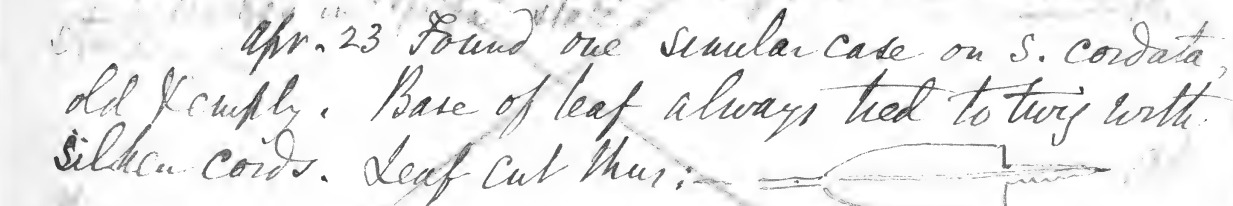 Apr. 23 Found one similar case on S. cordata,
old & empty. Base of leaf always tied to twig with
silken cords. Leaf cut thus:-